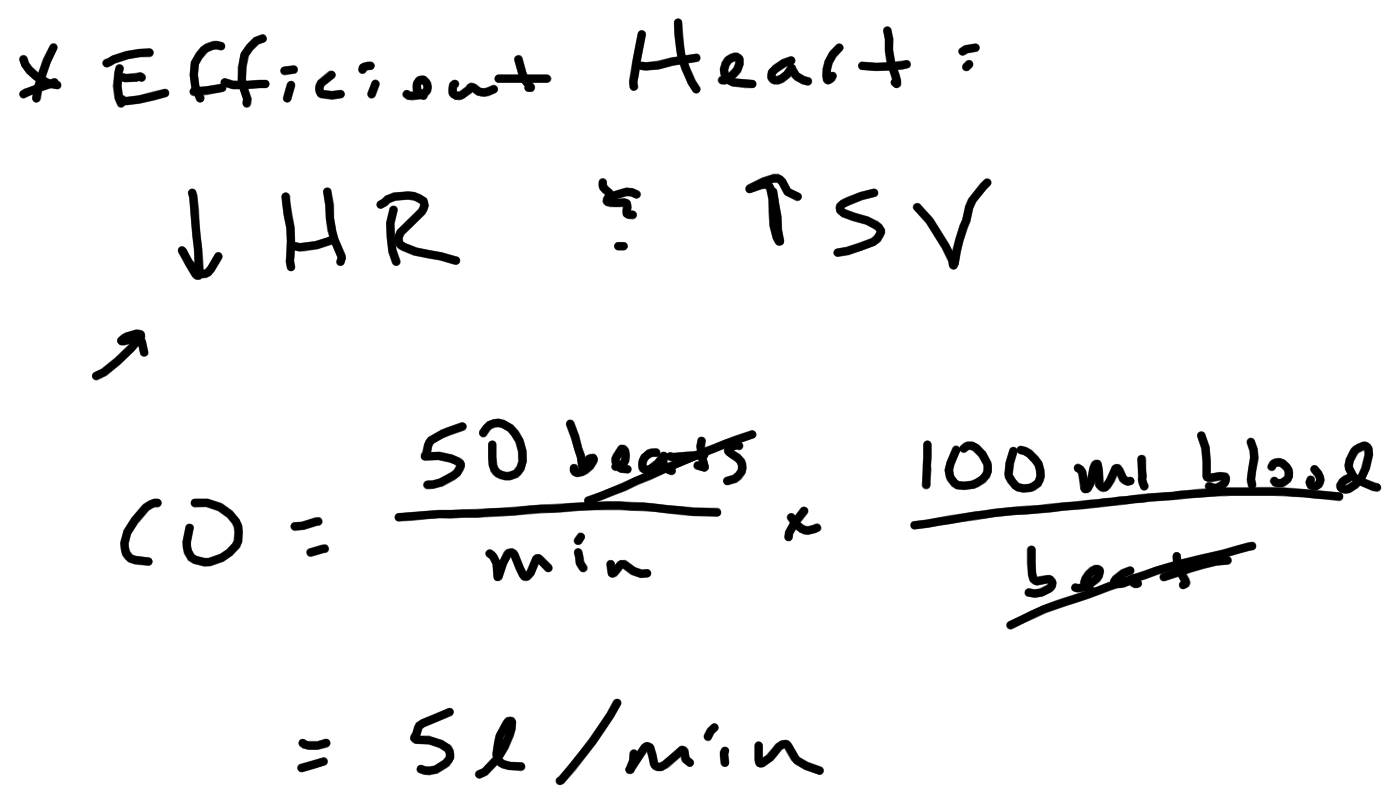 * Efficient Heart:
↓ HR & ↑ SV
↗
CO = 50 beats/min × 100 ml blood/beat
= 5l/min